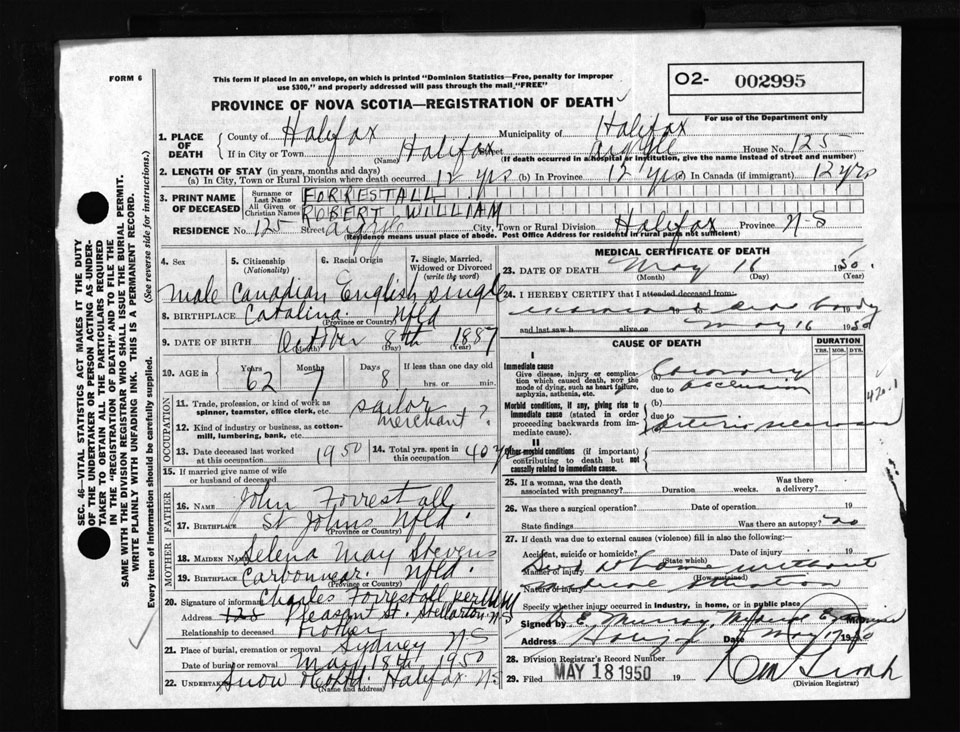 FORM 6
This form if placed in an envelope, on which is printed "Dominion Statistics—Free, penalty for improper
use $300," and properly addressed will pass through the mail "FREE"
O2- 002995
For use of the Department only
PROVINCE OF NOVA SCOTIA—REGISTRATION OF DEATH
1. PLACE OF DEATH County of Halifax Municipality of Halifax
If in City or Town Halifax (Name) Street Argyle House No. 125
(If death occurred in a hospital or institution, give the name instead of street and number)
2. LENGTH OF STAY (in years, months and days)
(a) In City, Town or Rural Division where death occurred 12 yrs (b) In Province 12 yrs (c) In Canada (if immigrant) 12 yrs
3. PRINT NAME OF DECEASED Surname or Last Name FORRESTALL
All Given or Christian Names ROBERT WILLIAM
RESIDENCE No. 125 Street Argyle City, Town or Rural Division Halifax Province N-S
(Residence means usual place of abode. Post Office Address for residents in rural parts not sufficient)
4. Sex 5. Citizenship (Nationality) 6. Racial Origin 7. Single, Married, Widowed or Divorced (write the word)
Male Canadian English single
8. BIRTHPLACE Catalina Nfld
(Province or Country)
9. DATE OF BIRTH October 8th 1887
(Month) (Day) (Year)
10. AGE in Years 62 Months 7 Days 8 If less than one day old hrs. or min.
OCCUPATION
11. Trade, profession, or kind of work as spinner, teamster, office clerk, etc. sailor
12. Kind of industry or business, as cotton-mill, lumbering, bank, etc. merchant ?
13. Date deceased last worked at this occupation 1950 14. Total yrs. spent in this occupation 40 yrs
15. If married give name of wife or husband of deceased
FATHER
16. Name John Forrestall
17. Birthplace St Johns Nfld.
MOTHER
18. Maiden Name Selena May Stevens
19. Birthplace Carbonear. Nfld.
(Province or Country)
20. Signature of informant Charles Forrestall per
Address 128 Pleasant St. Stellarton N-S
Relationship to deceased Brother
21. Place of burial, cremation or removal Sydney NS
Date of burial or removal May 18th 1950
22. Undertaker Snow Halifax N-S
(Name and address)
MEDICAL CERTIFICATE OF DEATH
23. DATE OF DEATH May 16 1950.
(Month) (Day) (Year)
24. I HEREBY CERTIFY that I attended deceased from:
19 to dead body
and last saw h alive on May 16 1950
CAUSE OF DEATH
DURATION
YRS. MOS. DYS.
I
Immediate cause
Give disease, injury or complication which caused death, NOT the mode of dying, such as heart failure, asphyxia, asthenia, etc.
(a) Coronary
due to occlusion
420-1
Morbid conditions, if any, giving rise to immediate cause (stated in order proceeding backwards from immediate cause).
(b)
due to
(c)
II
Other morbid conditions (if important) contributing to death but not causally related to immediate cause.
25. If a woman, was the death associated with pregnancy? Duration weeks. Was there a delivery?
26. Was there a surgical operation? Date of operation 19
State findings Was there an autopsy? no
27. If death was due to external causes (violence) fill in also the following:
Accident, suicide or homicide? (State which) Date of injury 19
Manner of injury Died at home without
(How sustained)
Nature of injury medical attention
Specify whether injury occurred in industry, in home, or in public place
Signed by E. Murray, Medical Examiner
Address Halifax Date May 17 1950
28. Division Registrar's Record Number
29. Filed MAY 18 1950 19
(Division Registrar)
SEC. 46—VITAL STATISTICS ACT MAKES IT THE DUTY
OF THE UNDERTAKER OR PERSON ACTING AS UNDER-
TAKER TO OBTAIN ALL THE PARTICULARS REQUIRED
IN THE "REGISTRATION OF DEATH" AND TO FILE THE
SAME WITH THE DIVISION REGISTRAR WHO SHALL ISSUE THE BURIAL PERMIT.
WRITE PLAINLY WITH UNFADING INK. THIS IS A PERMANENT RECORD.
Every item of information should be carefully supplied. (See reverse side for instructions.)